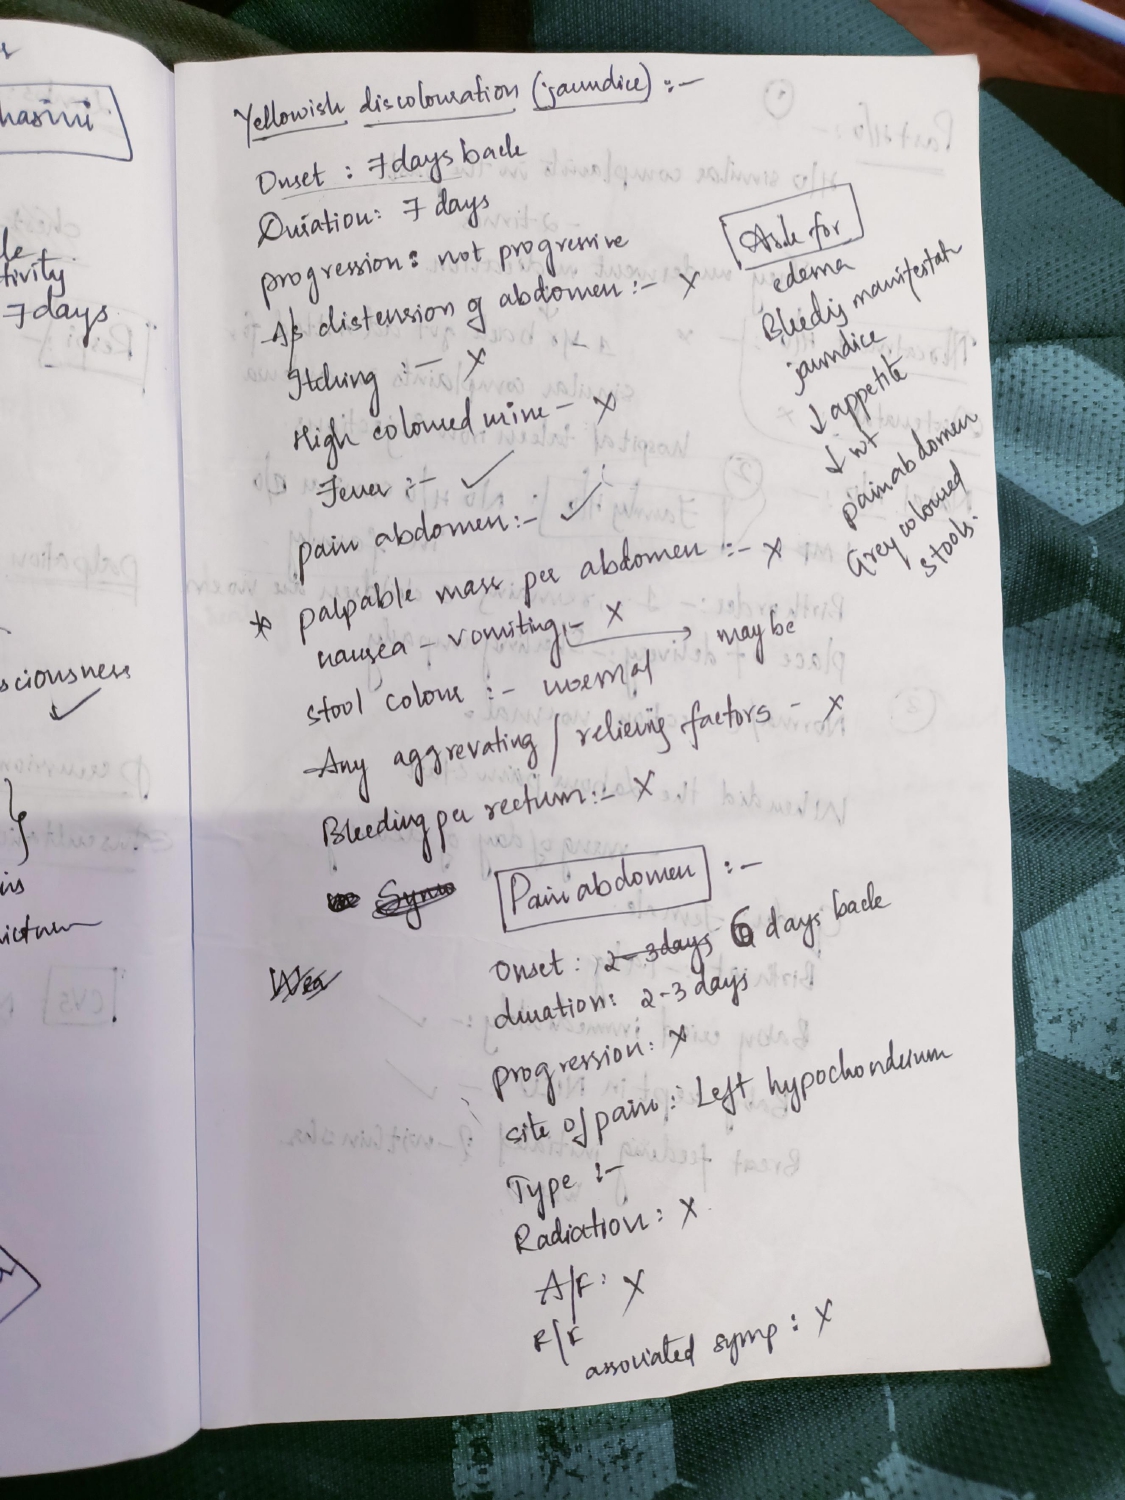 hasini
tivity
7 days
sciousness
Yellowish discolouration (jaundice) :-
Onset : 7 days back
Duration: 7 days
progression: not progressive
A/s distension of abdomen :- X
Itching :- X
High coloured urine - X
Fever :- ✓
pain abdomen:- ✓
* palpable mass per abdomen :- X
nausea - vomiting:- X → may be
stool colour :- normal
Any aggrevating / relieving factors - X
Bleeding per rectum:- X
Ask for
edema
Bleedig manifestatn
jaundice
↓ appetite
↓ wt
pain abdomen
Grey coloured
stools.
Pain abdomen :-
Onset : 2-3days 6 days back
duration: 2-3 days
progression: X
site of pain : Left hypochondrium
Type :-
Radiation: X
A/F: X
R/F
associated symp : X